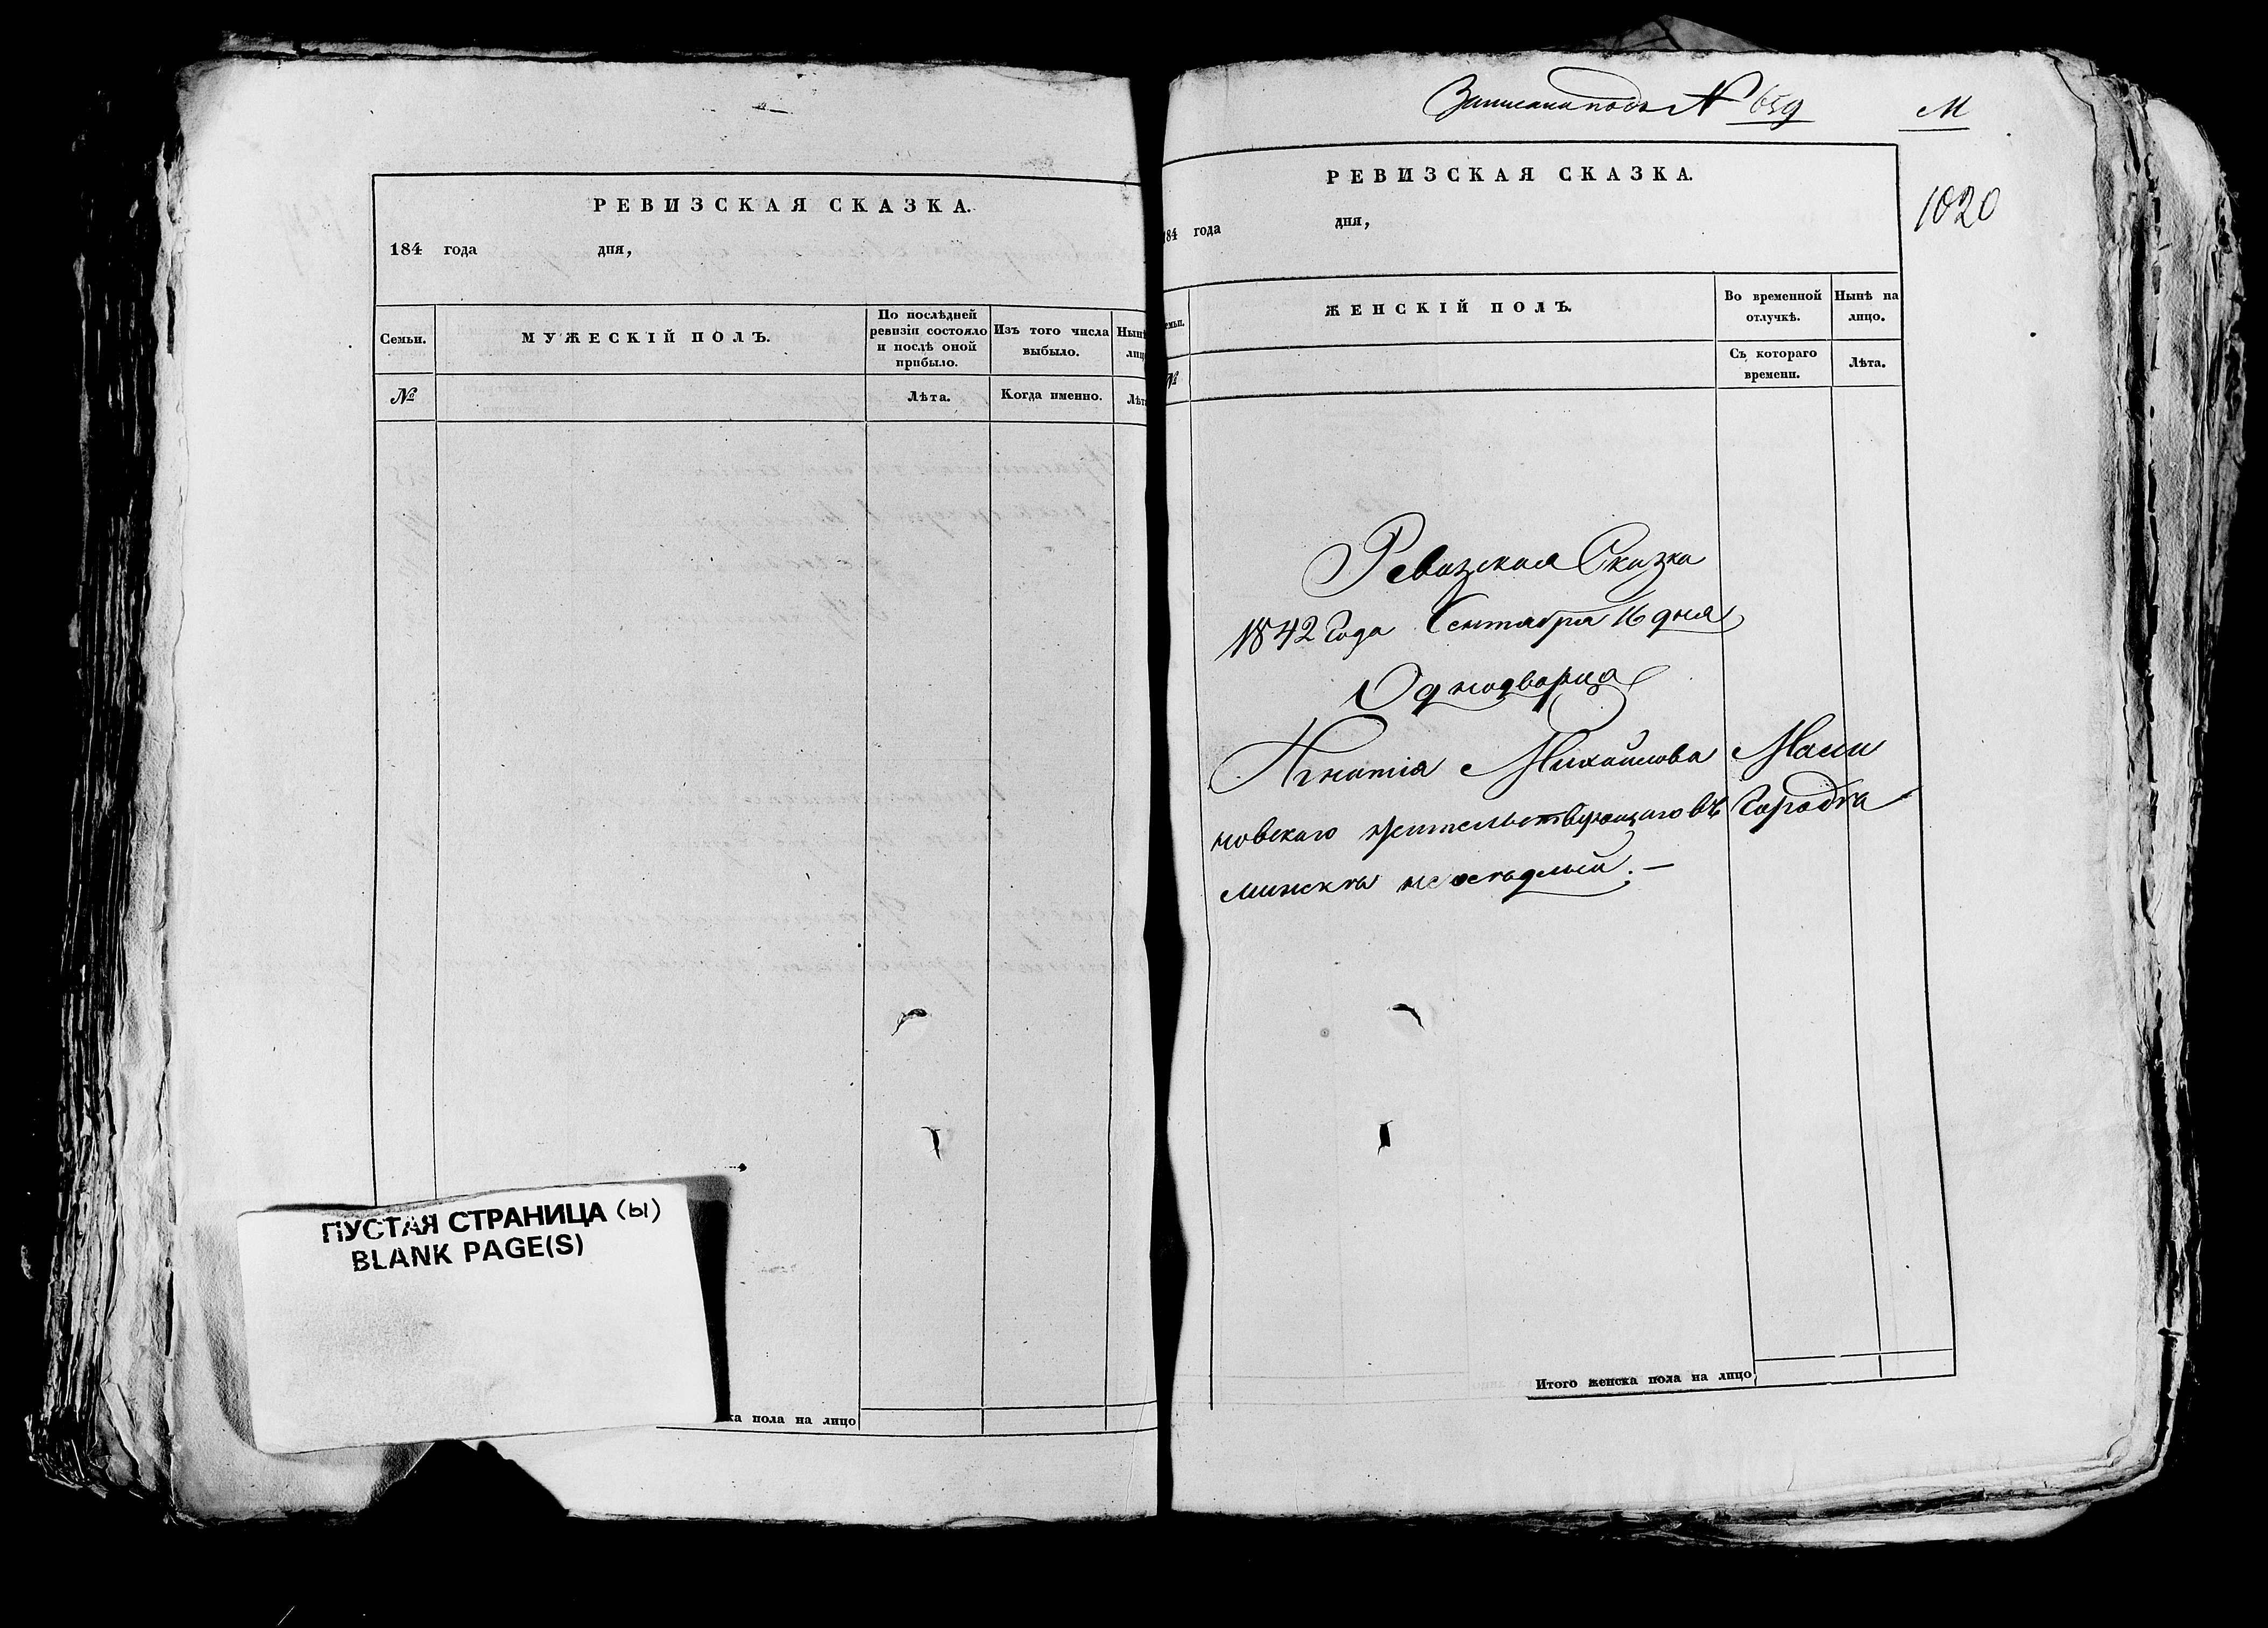 РЕВИЗСКАЯ СКАЗКА.
184 года дня,
Семьи.
МУЖЕСКІЙ ПОЛЪ.
По послѣдней
ревизіи состояло
и послѣ оной
прибыло.
Изъ того числа
выбыло.
Нынѣ
лиц
№
Лѣта.
Когда именно.
Лѣт
ПУСТАЯ СТРАНИЦА (ы)
BLANK PAGE(S)
ка пола на лицо
Записана подъ № 659
М
1020
РЕВИЗСКАЯ СКАЗКА.
184 года дня,
емьи.
ЖЕНСКІЙ ПОЛЪ.
Во временной
отлучкѣ.
Нынѣ на
лицо.
№
Съ котораго
времени.
Лѣта.
Ревизская Сказка
1842 Года Сентября 16 дня
Однодворца
Игнатія Михайлова Мали
новскаго жительствующаго въ Городѣ
Минскѣ неосѣдлый. —
Итого женска пола на лицо